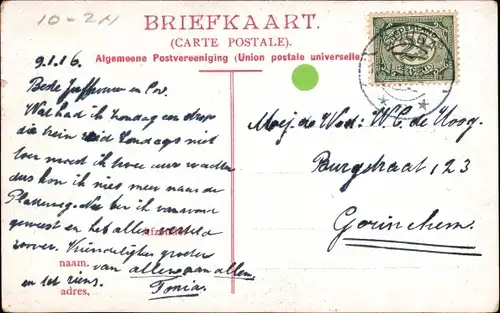 10-2H
BRIEFKAART.
(CARTE POSTALE).
Algemeene Postvereeniging (Union postale universelle)
NEDERLAND
2½
9.1.16.
Beste Juffrouw en Co.
Wat had ik Zondag een strop
die trein reed Zondags niet
toen moest ik twee uur wachten
dus kon ik niet meer naar de
Platteweg. Nu ben ik vanavond
geweest en heb alles
zoover. Vriendelijke groeten
van allen aan allen
en tot ziens. Tonia.
Afzender
naam.
adres,
Mej. de Wed: W. C. de Hoog.
Burgstraat 123
Gorinchem.